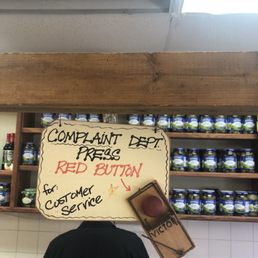 COMPLAINT DEPT.
PRESS
RED BUTTON
for:
Customer
Service
VICTOR